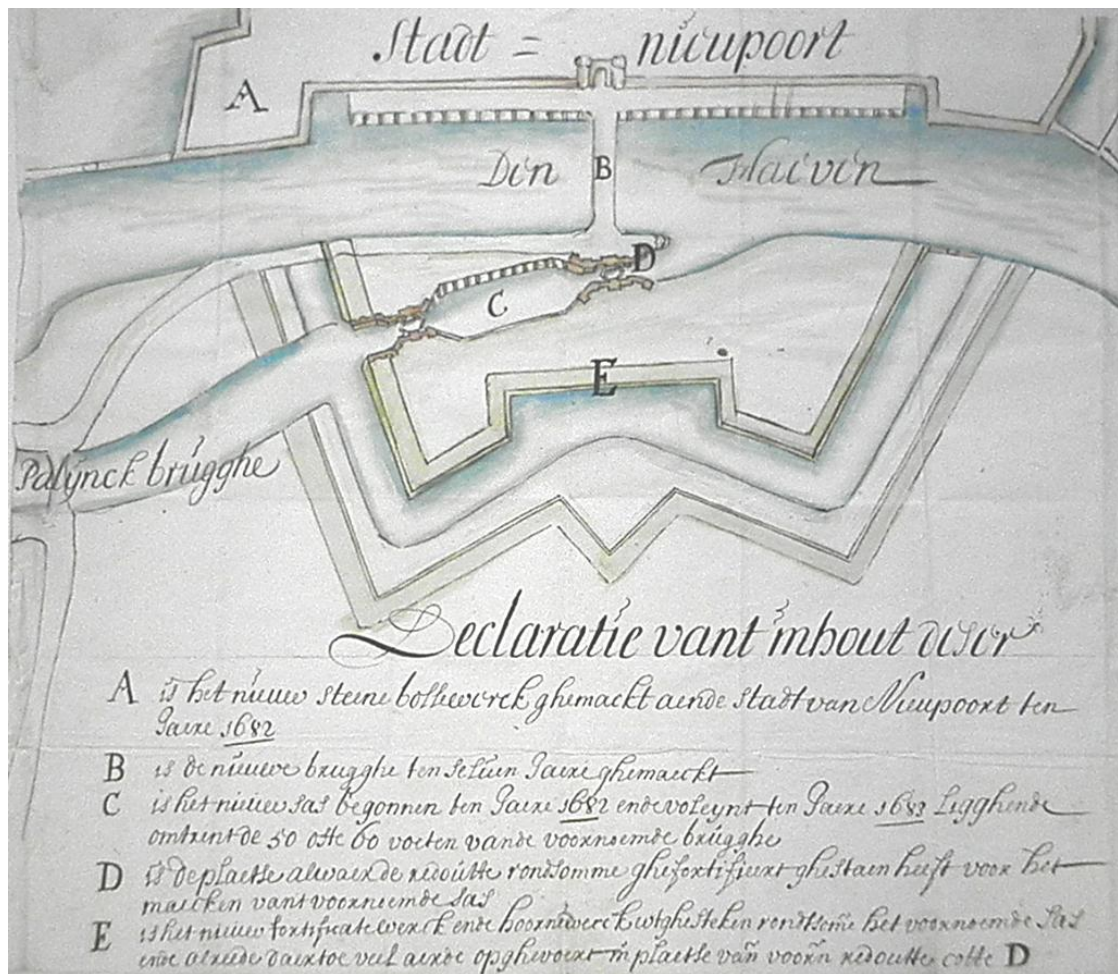 Stadt = nieupoort
A
Den B Haeven
D
C
E
Palynck brugghe
Declaratie vant inhout deser
A is het nieuw steine bollewerck ghemackt aende stadt van Nieupoort ten
Jaere 1682
B is de nieuwe brugghe ten selven Jaere ghemaeckt
C is het nieuw sas begonnen ten Jaere 1682 ende voleynt ten Jaere 1683 Ligghende
omtrent de 50 ofte 60 voeten vande voornoemde brugghe
D is de plaetse alwaer de redoutte rondsomme ghefortifieert ghestaen heeft voor het
maecken vant voorneemde sas
E is het nieuw fortificatiewerck ende hoornwerck uytghesteken rondtsome het voornoemde sas
ende alreede daertoe veel aerde opghevoert in plaetse van voorn redoutte cotte D